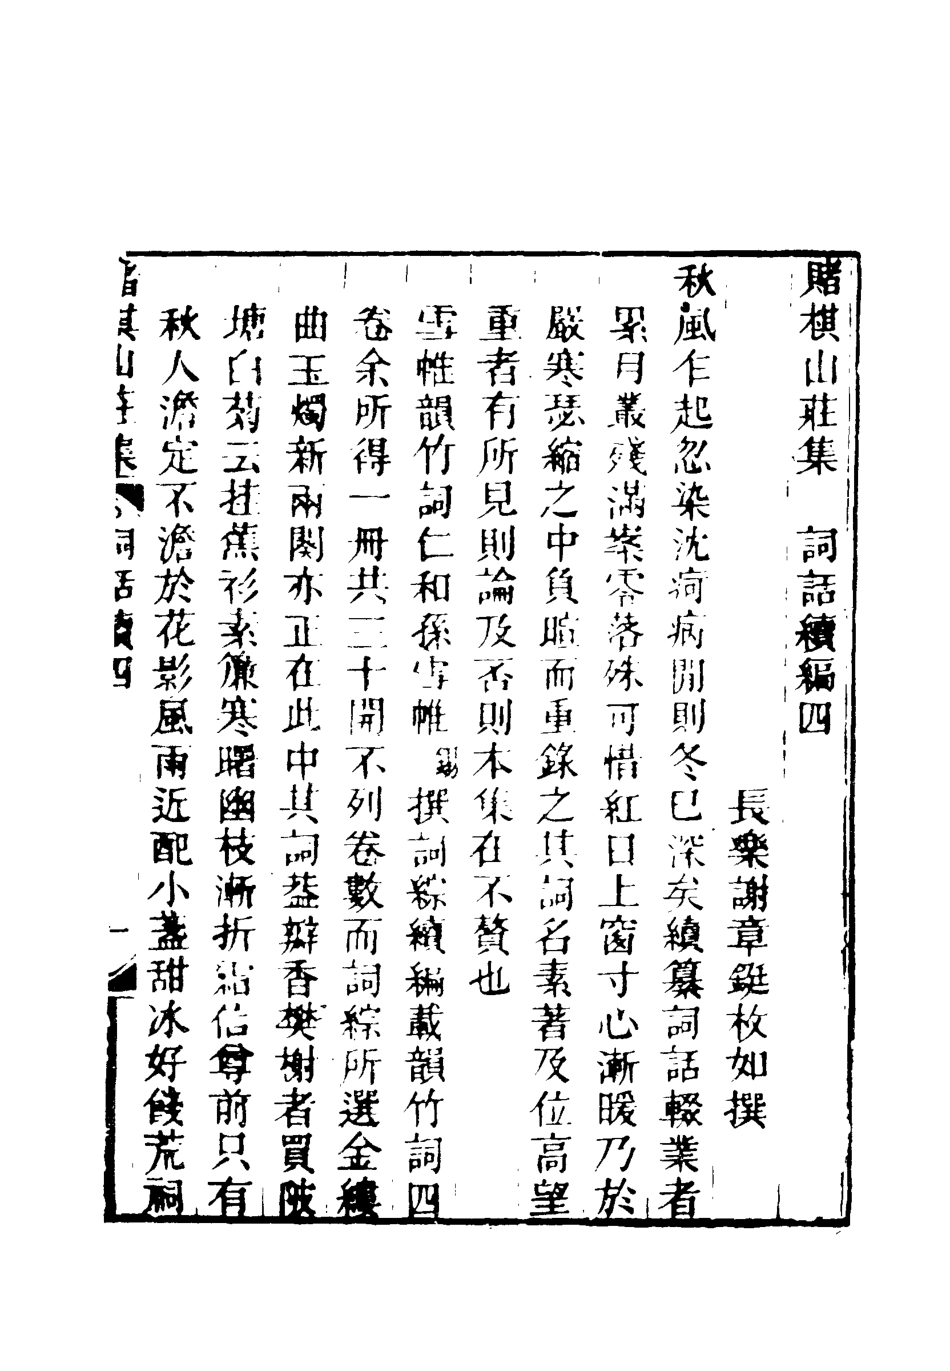 賭棋山莊集　詞話續編四
長樂謝章鋌枚如撰
秋風乍起忽染沈痾病閒則冬已深矣續纂詞話輟業者
累月叢殘滿案零落殊可惜紅日上窗寸心漸暖乃於
嚴寒瑟縮之中負暄而重錄之其詞名素著及位高望
重者有所見則論及否則本集在不贅也
雪帷韻竹詞仁和孫雪帷撰詞綜續編載韻竹詞四
卷余所得一冊共三十開不列卷數而詞綜所選金縷
曲玉燭新兩闋亦正在此中其詞葢辦香樊榭者買陂
塘白菊云挂蕉衫素簾寒曙幽枝漸折霑信尊前只有
秋人澹定不澹於花影風雨近配小盞甜冰好餞荒祠
賭棋山莊集　詞話續四　一